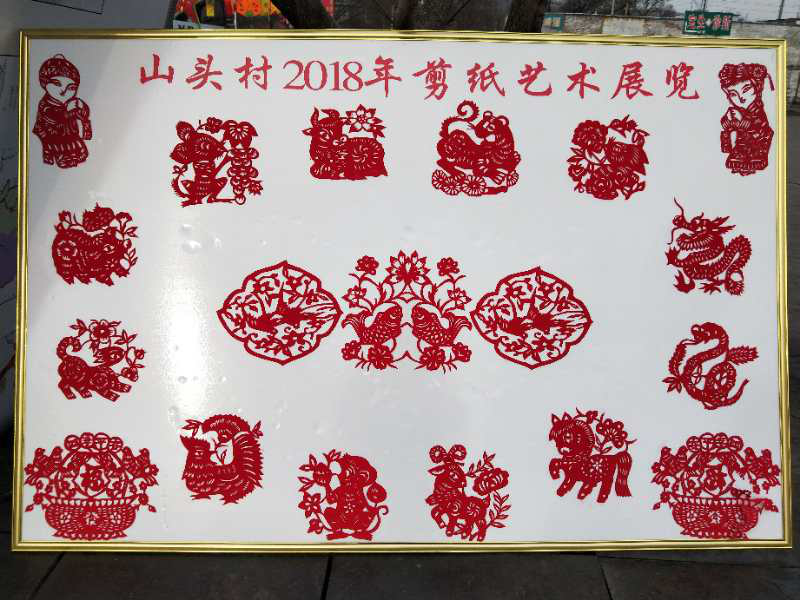 山头村2018年剪纸艺术展览